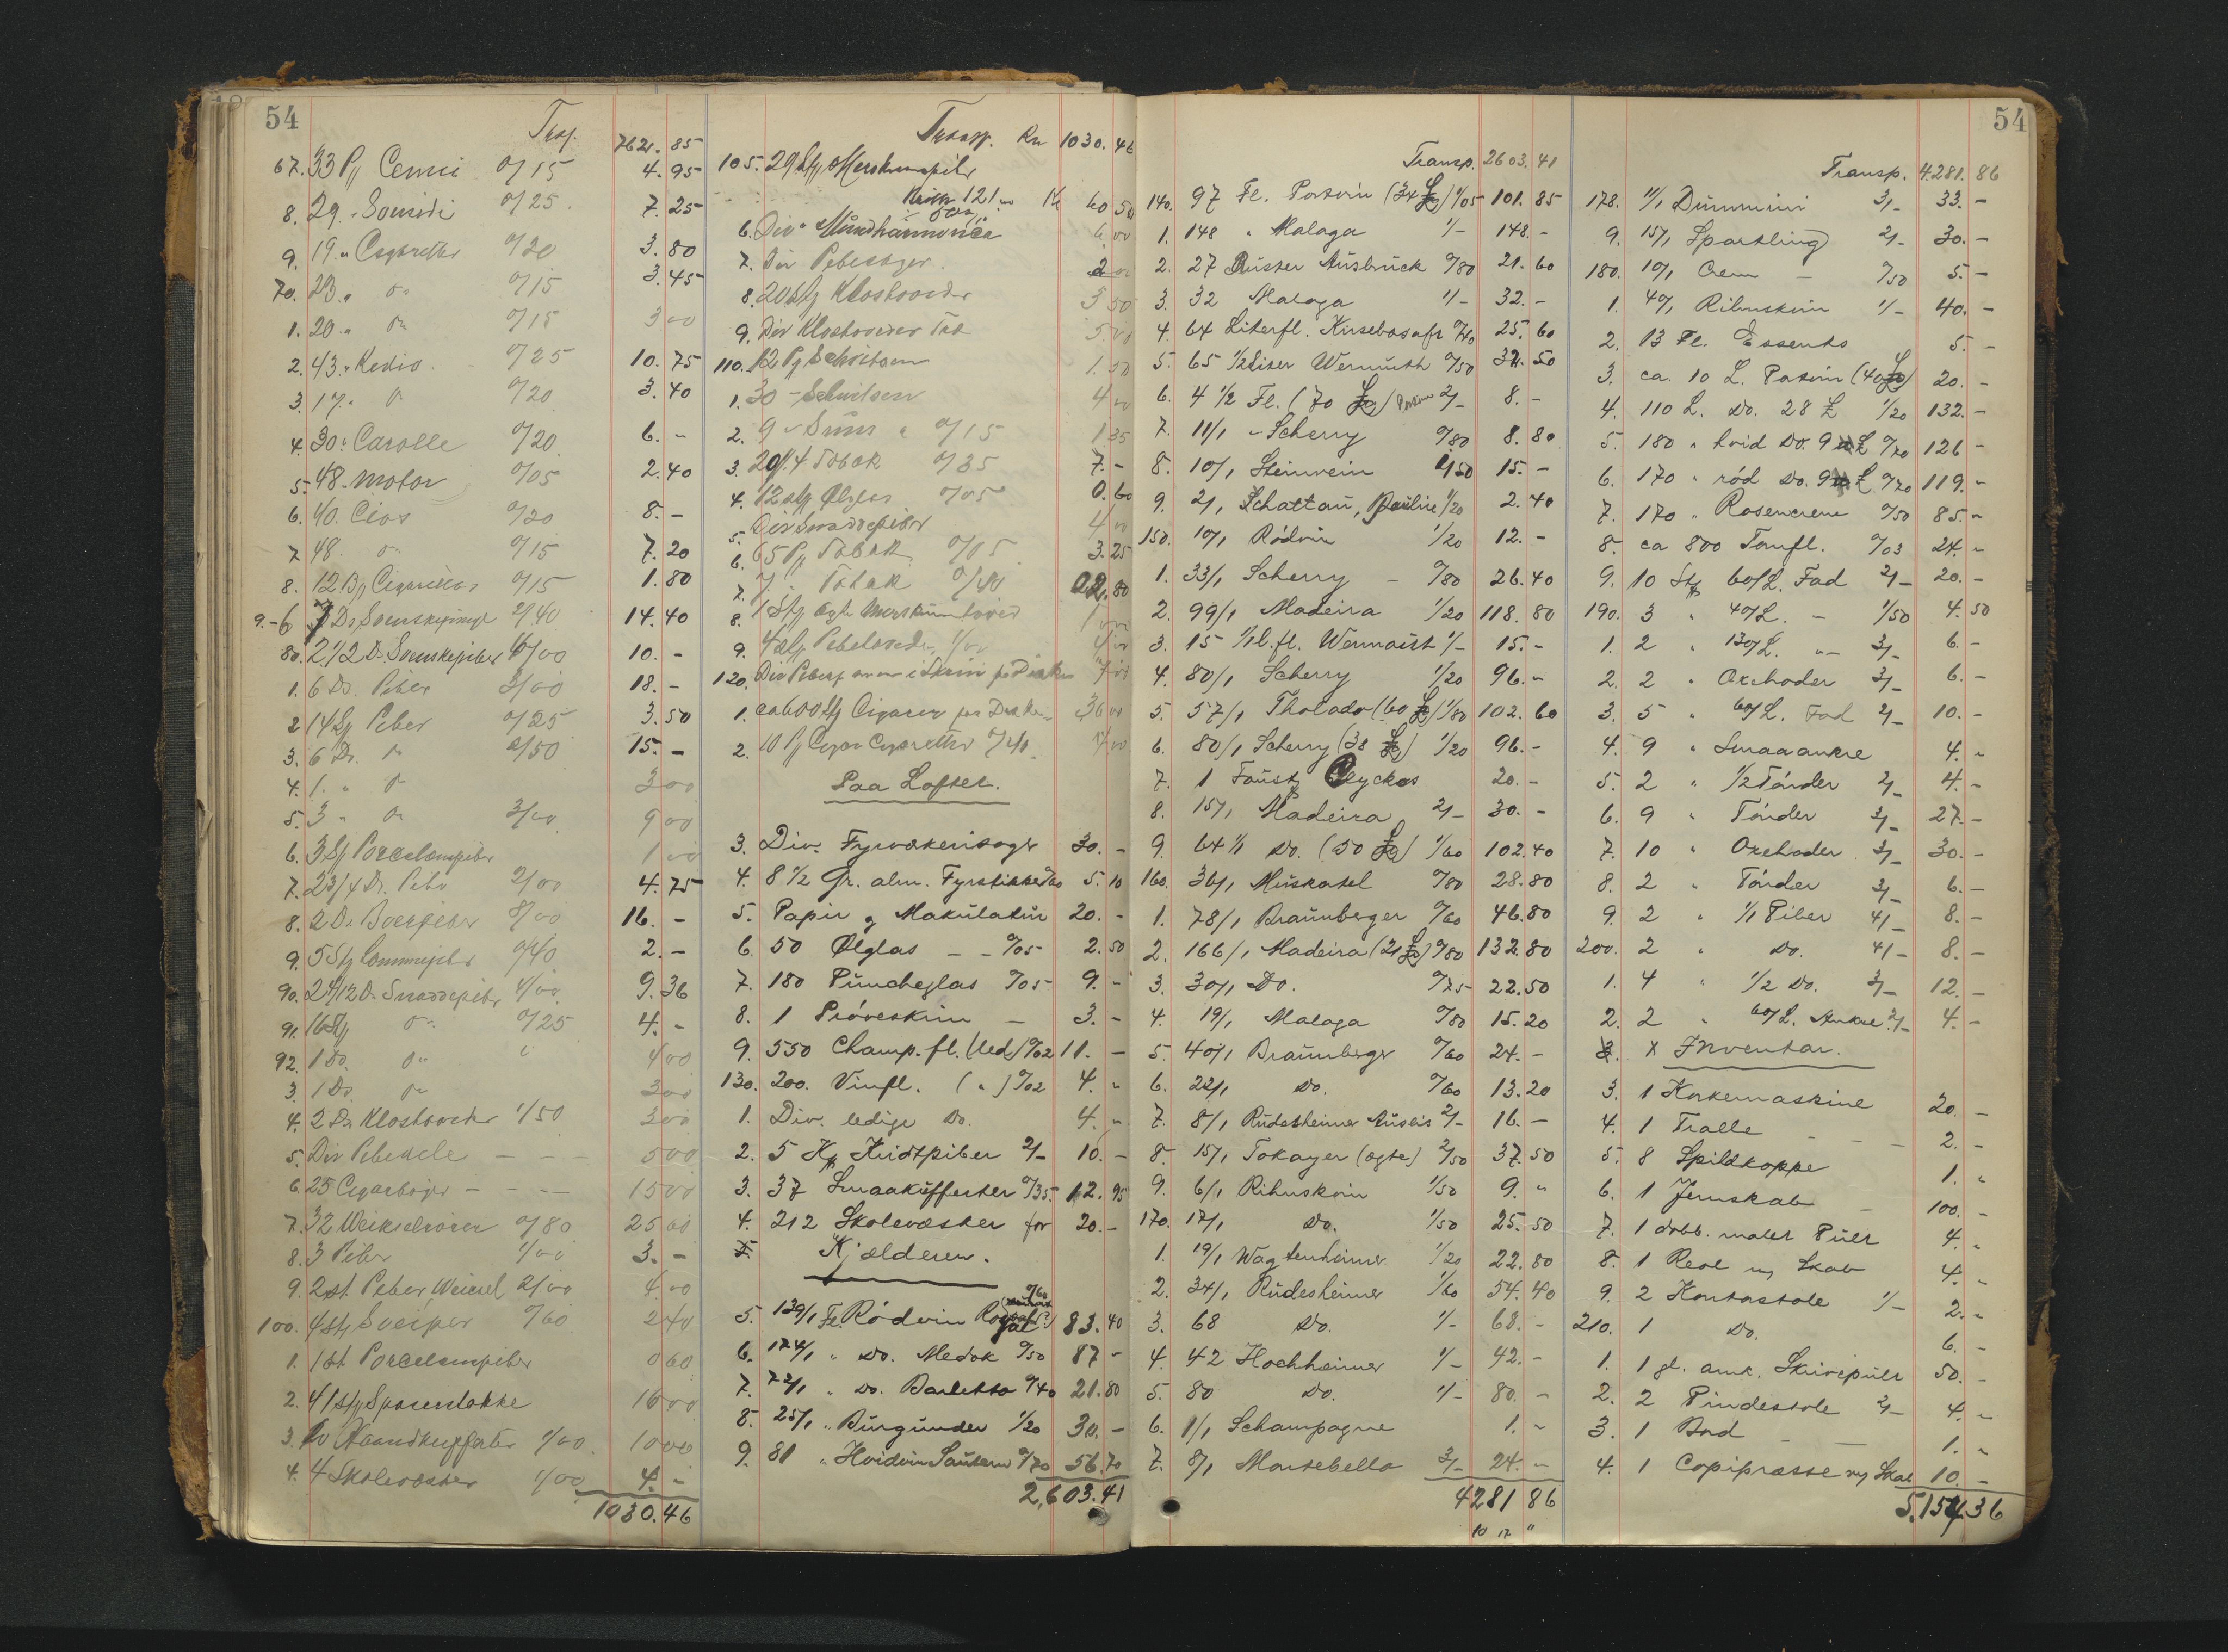 54
Trsp. 762. 85
67. 33 Pj Cemii 0/15 4. 95
8. 29. " Sousidi 0/25 7. 25
9. 19. " Cigaretter 0/20 3. 80
70. 23. " do 0/15 3. 45
1. 20. " do 0/15 3 00
2. 43. " Kedio 0/25 10. 75
3. 17. " do 0/20 3. 40
4. 30. " Carolle 0/20 6. "
5. 48. " Motor 0/05 2. 40
6. 40. Cios 0/20 8. -
7. 48. do 0/15 7. 20
8. 12 Pj Cigarillos 0/15 1. 80
9. - 6 Ds. 2/40 14. 40
80. 2 1/2 Ds. 4/00 10. -
1. 6 Ds. Piber 3/00 18. -
2. 14 Stj Piber 0/25 3. 50
3. 6 Ds. do 2/50 15. -
4. 1. " do 3 00
5. 3 " do 3/00 9 00
6. 3 Stj Porcelænspiber 1 00
7. 2 3/4 Ds. Piber 2/00 4. 75
8. 2 Ds. 8/00 16. -
9. 5 Stj Lommepiber 0/40 2. -
90. 2 4/12 Ds. Snaddepiber 4/00 9. 36
91. 16 Stj do 0/25 4. -
92. 1 Do. do 4 00
3. 1 Ds. do 3 00
4. 2 Ds. 1/50 3 00
5. Div Pibedele - - - 5 00
6. 25 Cigarbøger - - - 15 00
7. 32 Weikselrører 0/80 25 60
8. 3 Piber 1/00 3. -
9. 2 st. Piber, Weicsel 2/00 4. 00
100. 4 stj 0/60 2 40
1. 1 st. Porcelænspiber 0 60
2. 41 stj Spaserstokke 16 00
3. 10 Haandkufferter 1/00 10 00
4. 4 Skolevæsker 1/00 4. -
1030. 46
Transp. Kr 1030. 46
105. 29 Stj Merskumspiber
Kr 60 50
6. Div " Mundharmonica 6 00
7. Div Pibesager 2 00
8. 20 Stj 3 50
9. Div 5. 00
110. 12 Pj 1. 50
1. 30 - 4 00
2. 9 " 0/15 1 35
3. 20/4 Tobak 0/35 7. -
4. 12 stj Ølglas 0/05 0. 60
5. Div Snaddepiber 4 00
6. 65 Pj Tobak 0/05 3. 25
7. Tobak 0/40 80
8. 1 Stj ægte Merskum hoved
9. 4 stj Pibehoveder 1/00 4 00
120. Div
1. ca 600 stj Cigarer 36 00
2. 10 Pj Cigaretter 0/40 4 00
Paa Loftet.
3. Div. Fyrværkerisager 30. -
4. 8 1/2 Gr. alm. Fyrstikker 0/60 5. 10
5. Papir og Makulatur 20. -
6. 50 Ølglas - - 0/05 2. 50
7. 180 Puncheglas 0/05 9. -
8. 1 Prøveskrin - 3. -
9. 550 Champ. fl. (led) 0/02 11. -
130. 200. Vinfl. ( " ) 0/02 4. "
1. Div. ledige Do. 4. "
2. 5 Kj Kridtpiber 2/- 10. -
3. 37 Smaakufferter 0/35 12. 95
4. 212 Skolevæsker for 20. -
Kjælderen.
5. 139/1 Fl. Rødvin 0/60 83. 40
6. 174/1 " Do. Medok 0/50 87 -
7. " Do. Barletta 0/40 21. 80
8. 25/1 " Burgunder 1/20 30. -
9. 81 " Hvidvin Sautern 0/70 56. 70
2,603. 41
54
Transp. 2603. 41
140. 97 Fl. Portvin (34 £) 1/05 101. 85
1. 148 " Malaga 1/- 148. -
2. 27 Ruster Ausbruck 0/80 21. 60
3. 32 Malaga 1/- 32. -
4. 64 Literfl. Kirsebærsaft 0/40 25. 60
5. 65 1/2 Liter Wermuth 0/50 32. 50
6. 4 1/2 Fl. (70 £) Portvin 2/- 8. -
7. 11/1 " Scherry 0/80 8. 80
8. 10/1 Steinwein 1/50 15. -
9. 2/1 Schattau, Pauline 1/20 2. 40
150. 10/1 Rødvin 1/20 12. -
1. 33/1 Scherry - 0/80 26. 40
2. 99/1 Madeira 1/20 118. 80
3. 15 1/1 l. fl. Wermouth 1/- 15. -
4. 80/1 Scherry 1/20 96. "
5. 57/1 Tholado (60 £) 1/80 102. 60
6. 80/1 Scherry (38 £) 1/20 96. -
7. 1 20. -
8. 15/1 Madeira 2/- 30. -
9. 64 1/1 Do. (50 £) 1/60 102. 40
160. 36/1 Muskatel 0/80 28. 80
1. 78/1 Braunberger 0/60 46. 80
2. 166/1 Madeira (21 £) 0/80 132. 80
3. 30/1 Do. 0/75 22. 50
4. 19/1 Malaga 0/80 15. 20
5. 40/1 Braunberger 0/60 24. -
6. 22/1 Do. 0/60 13. 20
7. 8/1 Rudesheimer Auslis 2/- 16. -
8. 15/1 Tokayer (ægte) 2/50 37. 50
9. 6/1 Ribuskvin 1/50 9. "
170. 17/1 Do. 1/50 25. 50
1. 19/1 Wagtenheimer 1/20 22. 80
2. 34/1 Rudesheimer 1/60 54. 40
3. 68 Do. 1/- 68. -
4. 42 Hochheimer 1/- 42. -
5. 80 Do. 1/- 80. -
6. 1/1 Schampagne 1. "
7. 8/1 Montebello 3/- 24. -
4281 86
10 17 "
Transp. 4.281. 86
178. 11/1 Dummini 3/- 33. -
9. 15/1 Sparkling 2/- 30. -
180. 10/1 Crem - 0/50 5. -
1. 40/1 Ribuskvin 1/- 40. -
2. 13 Fl. Essents 5. -
3. ca. 10 L. Portvin (40 £) 20. -
4. 110 L. Do. 28 £ 1/20 132. -
5. 180 " hvid Do. 9 £ 0/70 126 -
6. 170 " rød Do. 9 £ 0/70 119. "
7. 170 " Rosencrem 0/50 85. "
8. ca 800 Tomfl. 0/03 24. "
9. 10 Stj 60/L. Fad 2/- 20. -
190. 3 " 40/L. - 1/50 4. 50
1. 2 " 130/L. " 3/- 6. -
2. 2 " Oxehoder 3/- 6. -
3. 5 " 60/L. Fad 2/- 10. -
4. 9 " Smaaankre 4. "
5. 2 " 1/2 Tønder 2/- 4. -
6. 9 " Tønder 3/- 27. -
7. 10 " Oxehoder 3/- 30. -
8. 2 " Tønder 3/- 6. -
9. 2 " 1/1 Piber 4/- 8. -
200. 2 " Do. 4/- 8. -
1. 4 " 1/2 Do. 3/- 12. -
2. 2 " 60/L. Ankre 2/- 4. -
x Inventar.
3. 1 Korkemaskine 20. -
4. 1 Tralle - - - 2. -
5. 8 Spildkoppe 1. "
6. 1 Jernskab - 100. -
7. 1 dobb. malet Pult 4. "
8. 1 Reol m/ Skab 4. "
9. 2 Kontorstole 1/- 2. "
210. 1 Do. 6. -
1. 1 gl. amk. Skrivepult 50. -
2. 2 Pindestole 2/- 4. "
3. 1 Bord - - 1. "
4. 1 Copipresse m/ Skab 10. -
5.154.36